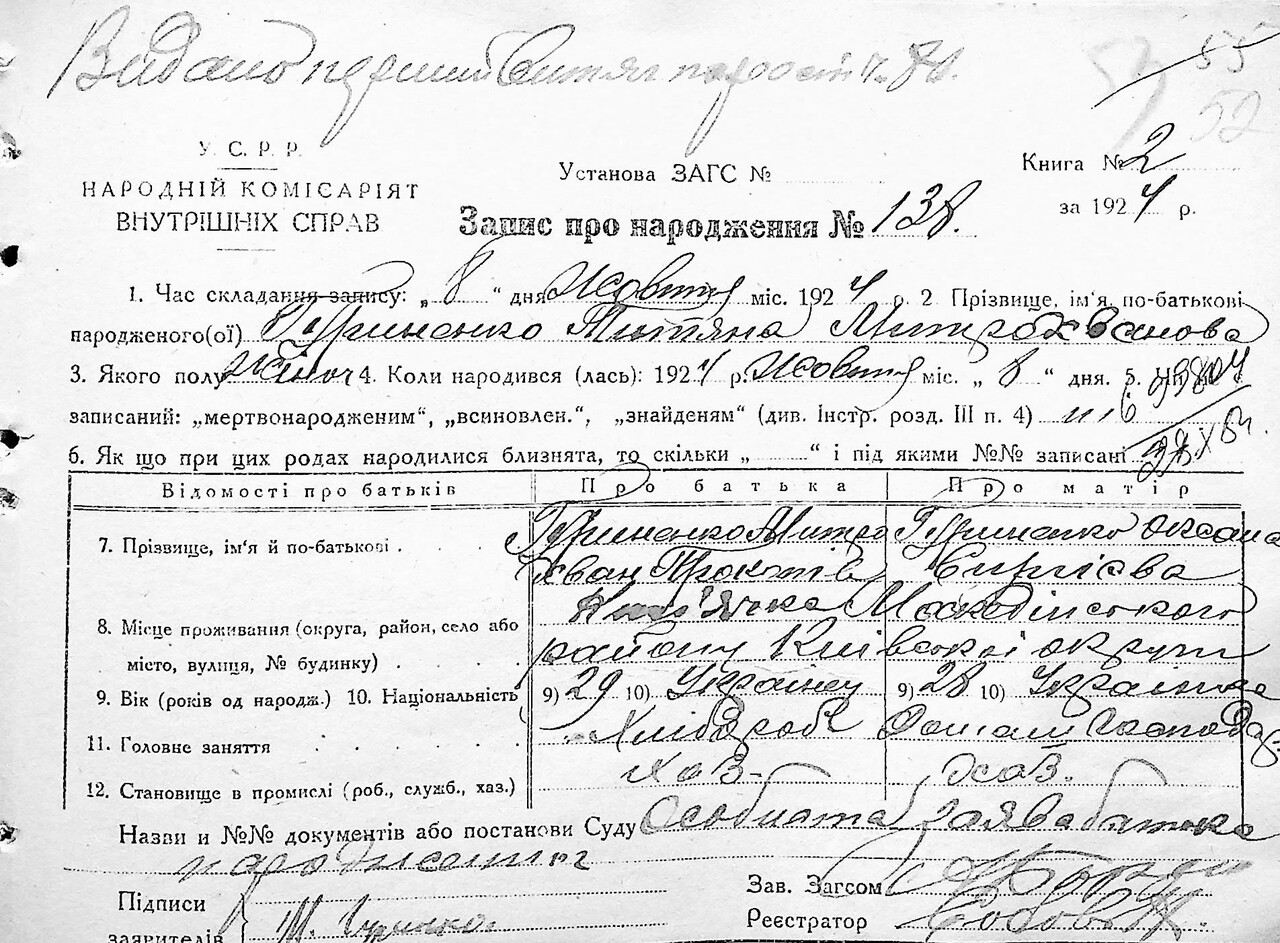 Видано перший Витяг
55
52
У. С. Р. Р.
НАРОДНІЙ КОМІСАРІЯТ
ВНУТРІШНІХ СПРАВ
Установа ЗАГС №
Книга № 2
за 1924 р.
Запис про народження № 138.
1. Час складання запису: „ 8 “ дня Жовтня міс. 1924 р. 2 Прізвище, ім'я, по-батькові
народженого(ої) Гуриненко Титяна Митрохванова
3. Якого полу Жіноч 4. Коли народився (лась): 1924 р. Жовтня міс. „ 8 “ дня. 5.
записаний: „мертвонародженим“, „всиновлен.“, „знайденям“ (див. Інстр. розд. III п. 4)
6. Як що при цих родах народилися близнята, то скільки „ “ і під якими №№ записані
Відомості про батьків Про батька Про матір
7. Прізвище, ім'я й по-батькові Гуриненко Митро Гуриненко Оксана
хван Прокопів Сиргієва
8. Місце проживання (округа, район, село або
місто, вулиця, № будинку) району Київської округи
9. Вік (років од народж.) 10. Національність 9) 29 10) Українец 9) 28 10) Українка
11. Головне заняття Хлібороб Домаш Господар
12. Становище в промислі (роб., служб., хаз.) Хаз.
Назви и №№ документів або постанови Суду Особиста заява батька
Підписи
заявителів
Зав. Загсом
Реєстратор